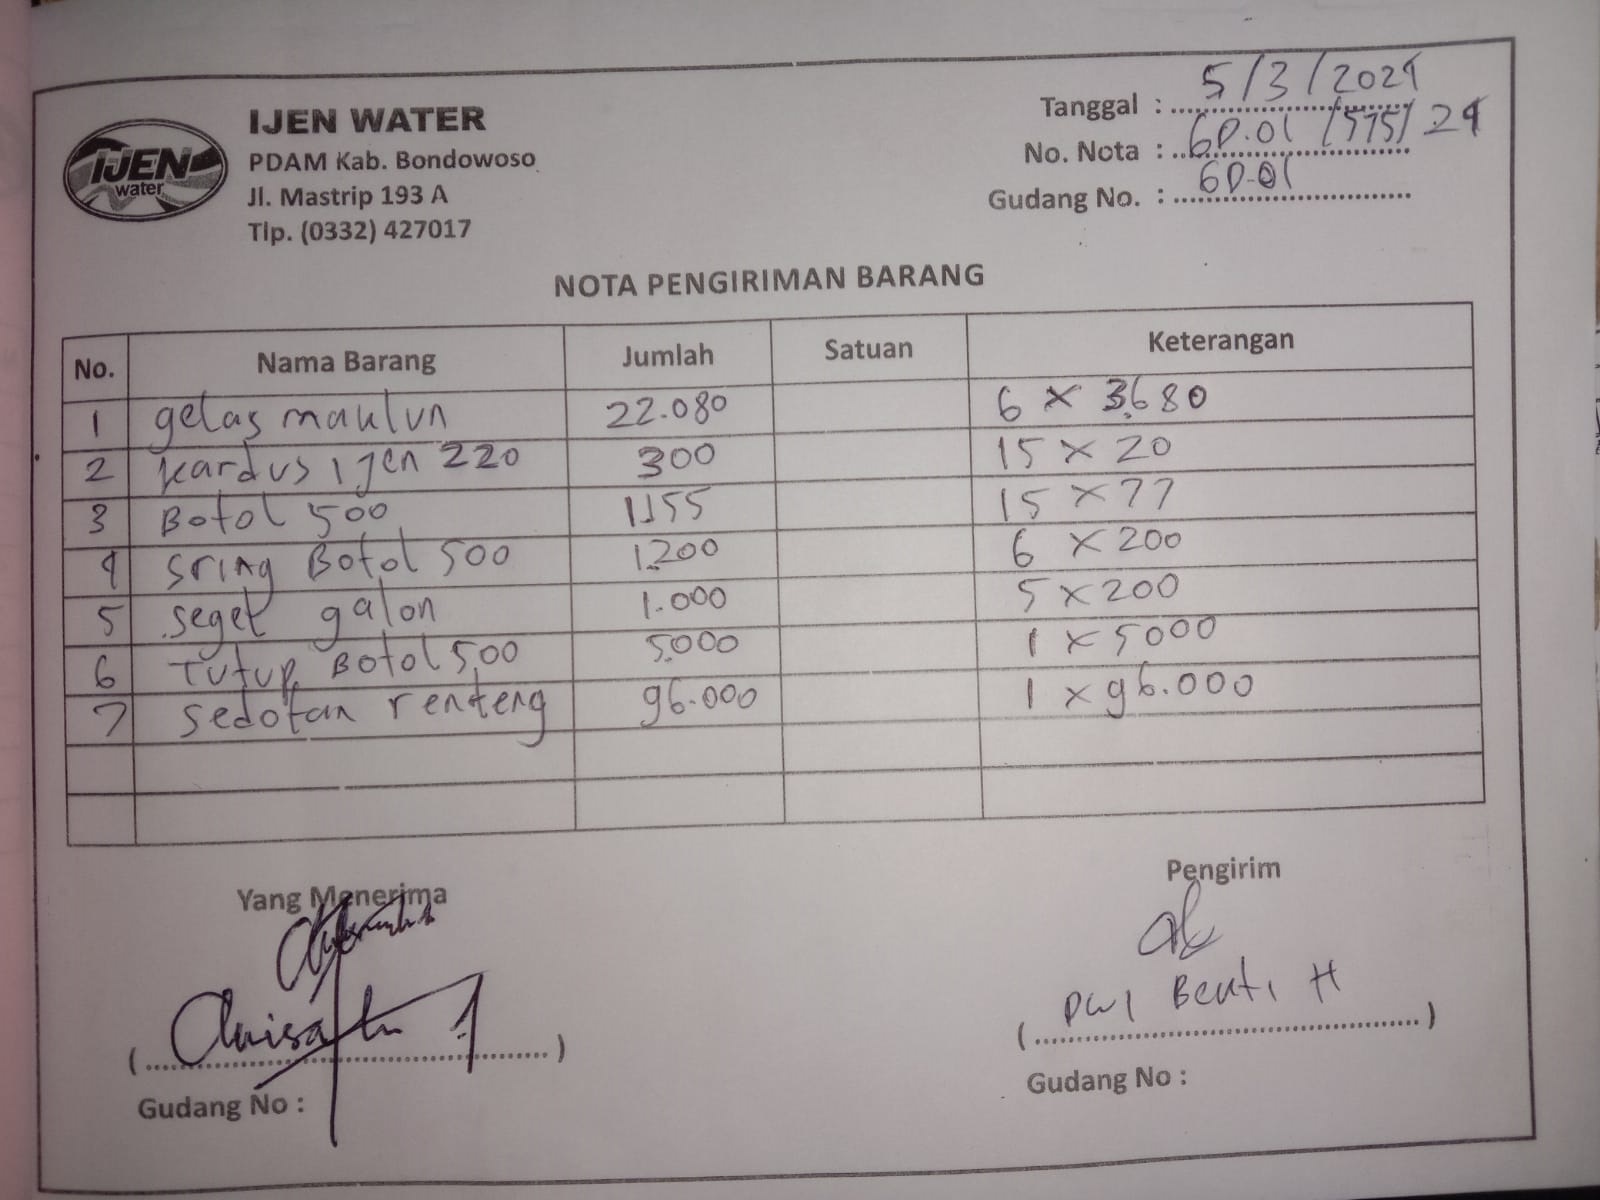 IJEN WATER
PDAM Kab. Bondowoso
Jl. Mastrip 193 A
Tlp. (0332) 427017
IJEN
water
Tanggal : 5/3/2024
No. Nota : GD.01 /575/ 24
Gudang No. : GD.01
NOTA PENGIRIMAN BARANG
No. Nama Barang Jumlah Satuan Keterangan
1 gelas maklun 22.080 6 x 3.680
2 kardus Ijen 220 300 15 x 20
3 Botol 500 1155 15 x 77
4 sring Botol 500 1.200 6 x 200
5 seget galon 1.000 5 x 200
6 Tutup Botol 500 5.000 1 x 5000
7 sedotan renteng 96.000 1 x 96.000
Yang Menerima
Pengirim
Dwi H
(........................)
(........................)
Gudang No :
Gudang No :